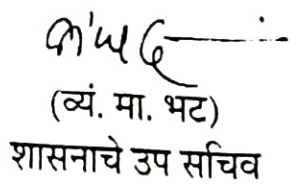 (व्यं. मा. भट)
शासनाचे उप सचिव